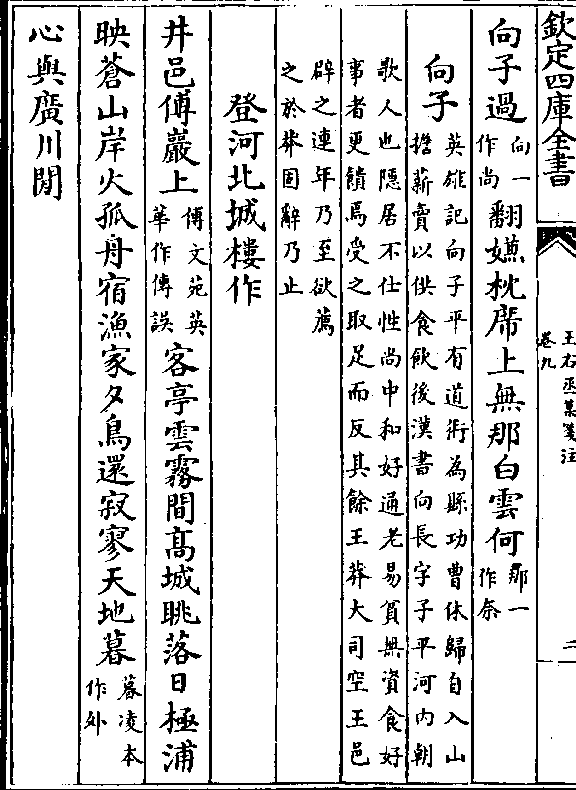 欽定四庫全書
王右丞集箋注
卷九
二
向子過向一作尚翻嫌枕席上無那白雲何那一作奈
向子
英雄記向子平有道術為縣功曹休歸自入山
擔薪賣以供食飲後漢書向長字子平河內朝
歌人也隱居不仕性尚中和好通老易貧無資食好
事者更饋焉受之取足而反其餘王莽大司空王邑
辟之連年乃至欲薦
之於莽固辭乃止
登河北城樓作
井邑傅巖上傅文苑英華作傳誤客亭雲霧間高城眺落日極浦
映蒼山岸火孤舟宿漁家夕鳥還寂寥天地暮暮凌本作外
心與廣川閒